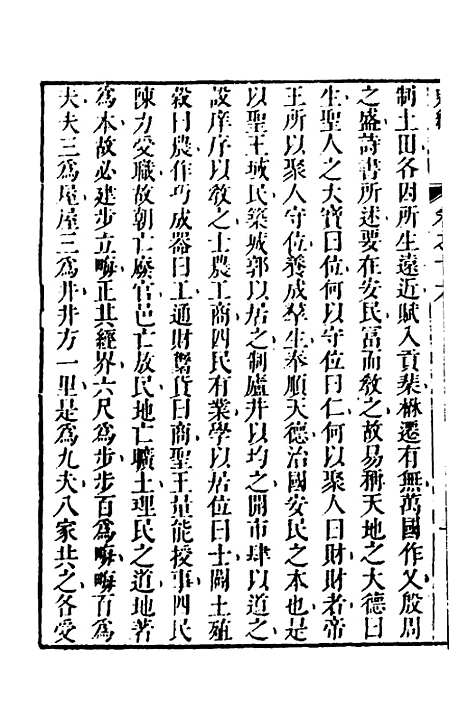 制土田各因所生遠近賦入貢棐楙遷有無萬國作乂殷周
之盛詩書所述要在安民富而敎之故易稱天地之大德曰
生聖人之大寶曰位何以守位曰仁何以聚人曰財財者帝
王所以聚人守位養成羣生奉順天德治國安民之本也是
以聖王域民築城郭以居之制廬井以均之開市肆以通之
設庠序以敎之士農工商四民有業學以居位曰士闢土殖
穀曰農作巧成器曰工通財鬻貨曰商聖王量能授事四民
陳力受職故朝亡廢官邑亡敖民地亡曠土理民之道地著
爲本故必建步立畮正其經界六尺爲步步百爲畮畮百爲
夫夫三爲屋屋三爲井井方一里是爲九夫八家共之各受